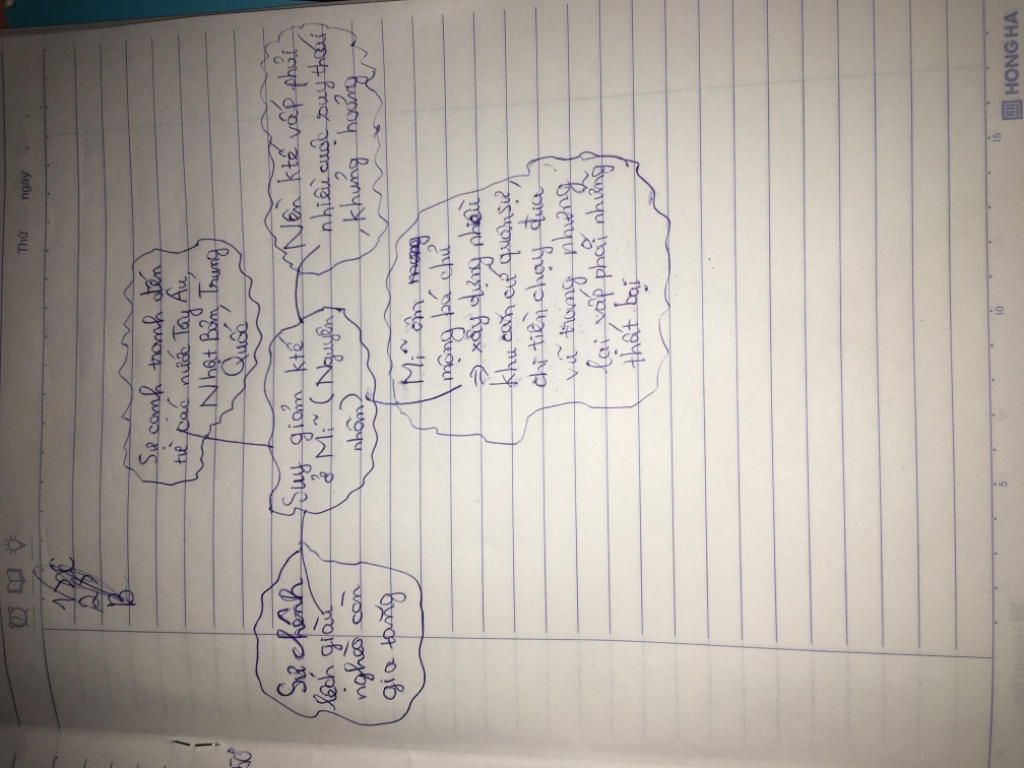 Thứ ngày
Sự cạnh tranh đến
từ các nước Tây Âu,
Nhật Bản, Trung
Quốc
Sự chênh
lệch giàu
nghèo còn
gia tăng
Suy giảm ktế
ở Mĩ (Nguyên
nhân)
Nền ktế vấp phải
nhiều cuộc suy thoái
, khủng hoảng
Mĩ ôm mang
mộng bá chủ
⇒ xây dựng nhiều
khu căn cứ quân sự,
chi tiền chạy đua
vũ trang nhưng
lại vấp phải những
thất bại
5
10
15
HONG HA